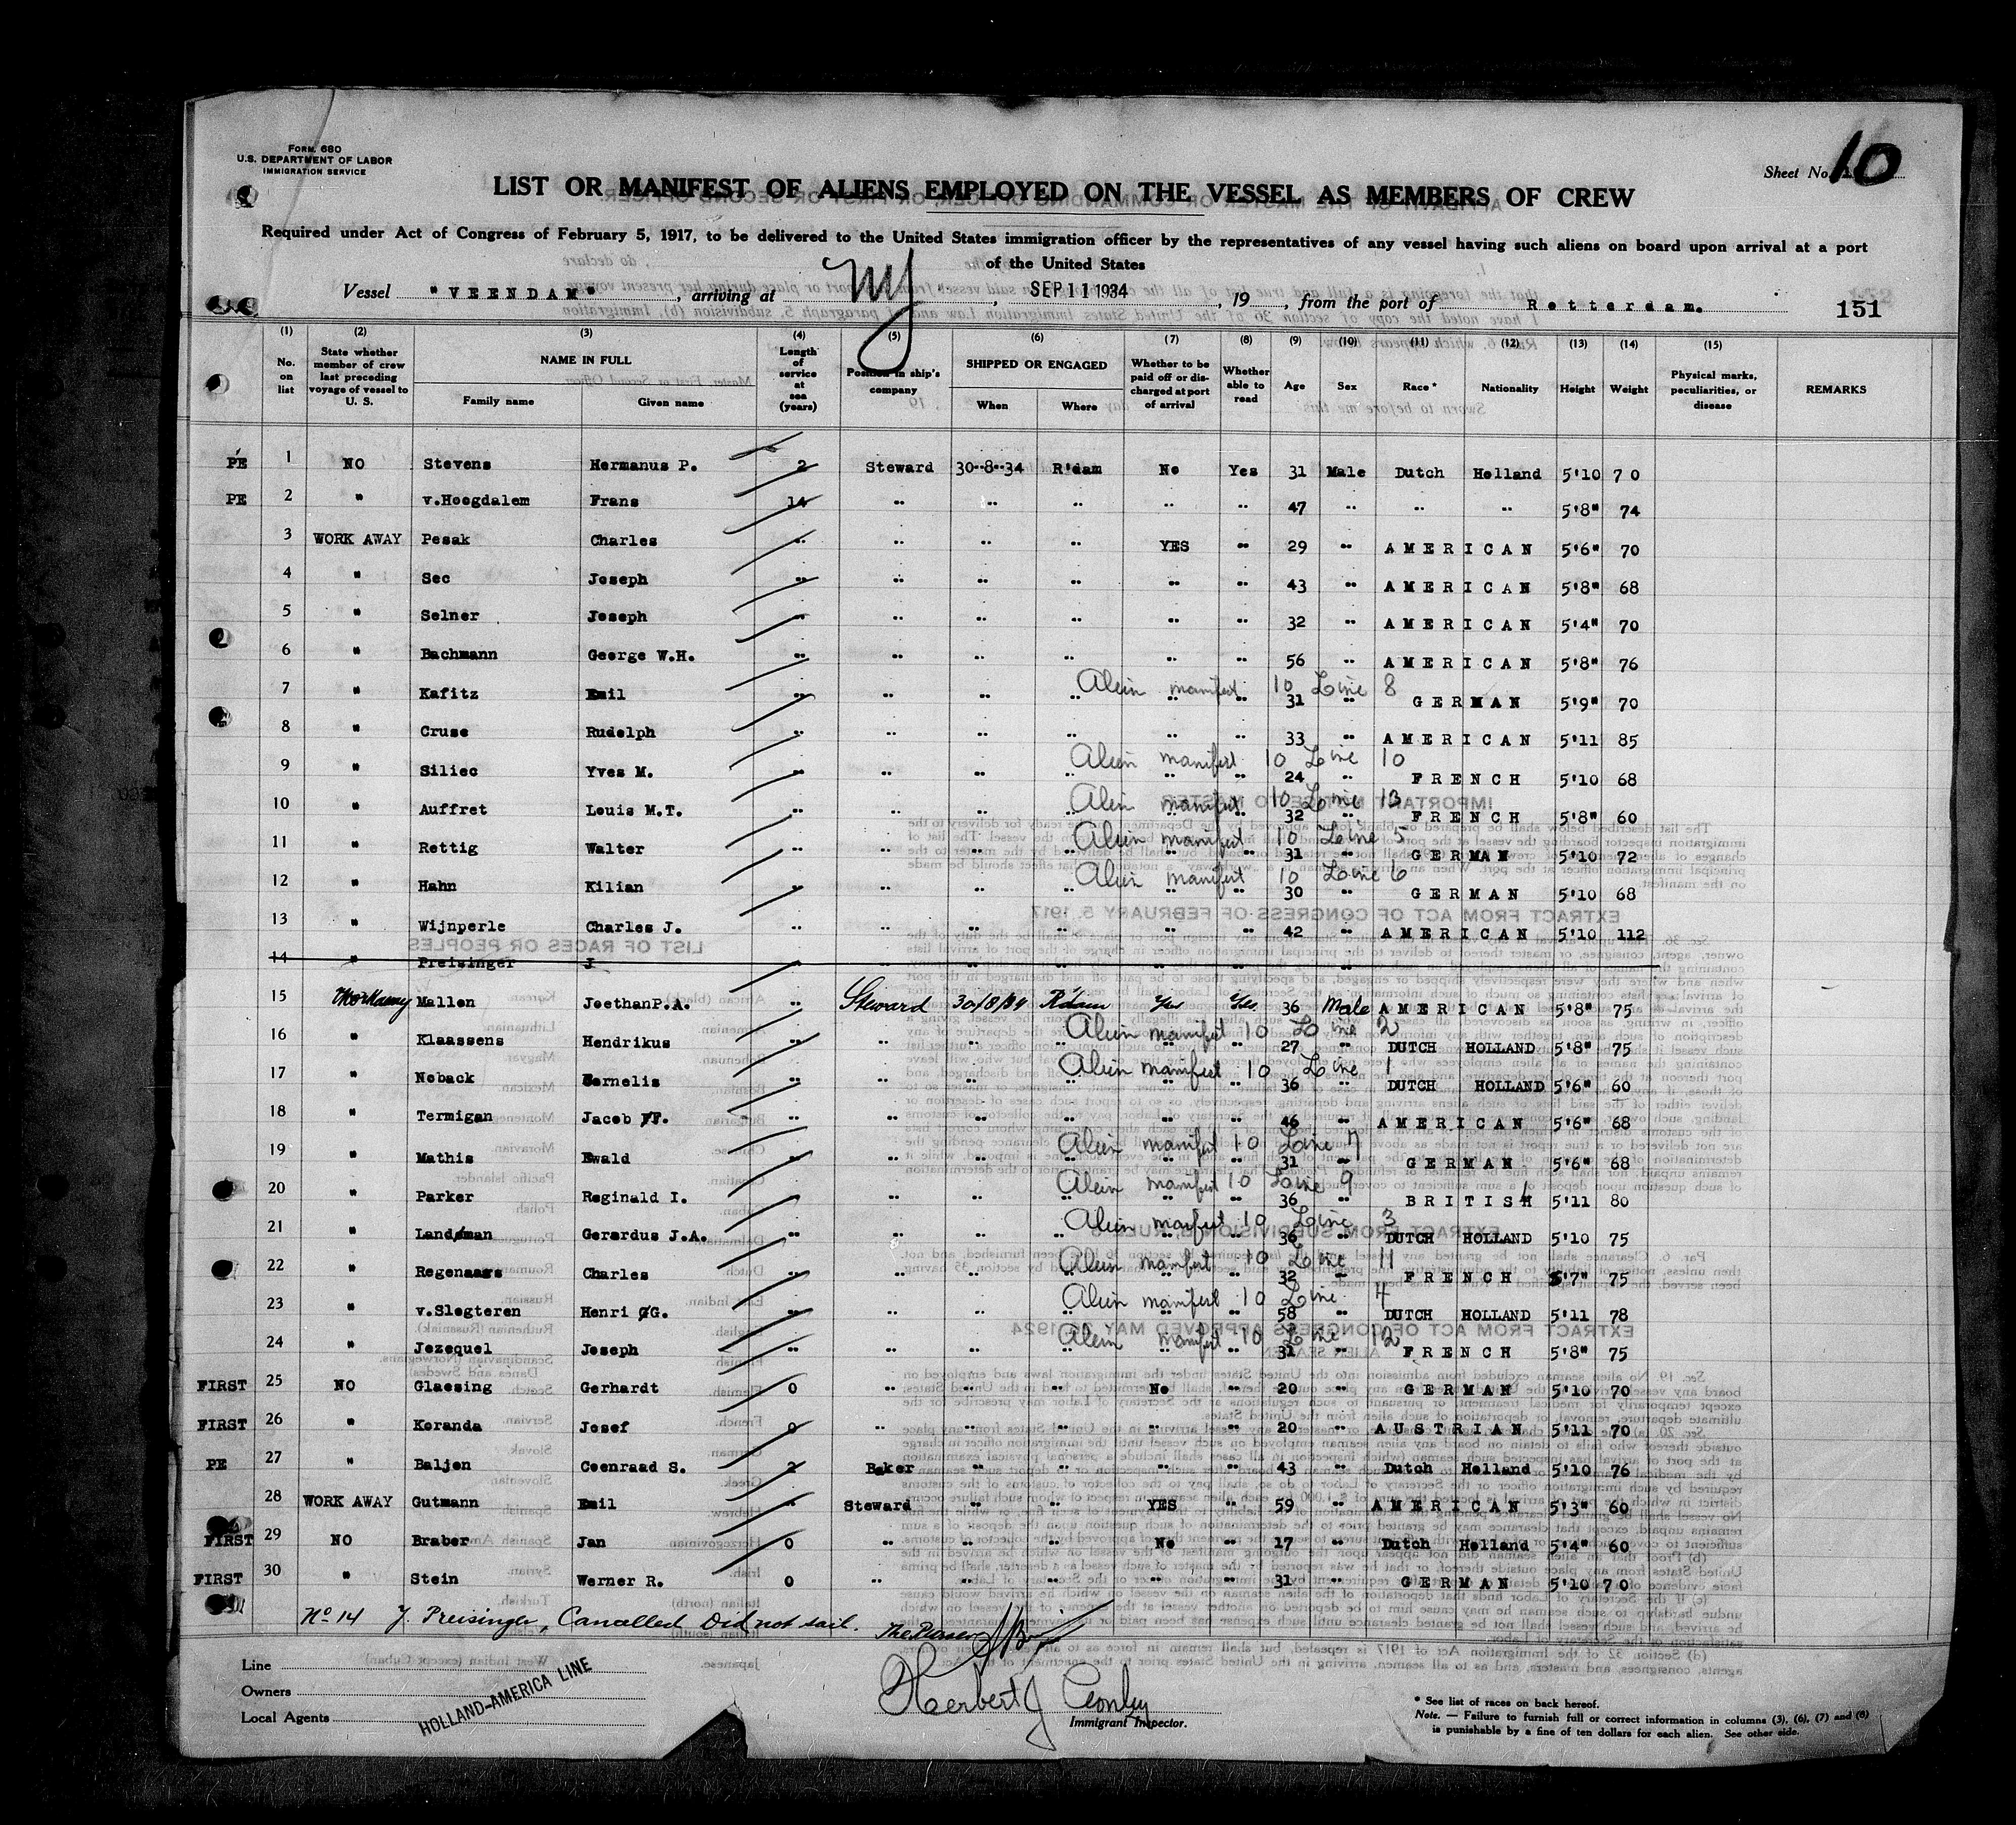 Form 680
U.S. DEPARTMENT OF LABOR
IMMIGRATION SERVICE
Sheet No. 10
LIST OR MANIFEST OF ALIENS EMPLOYED ON THE VESSEL AS MEMBERS OF CREW
Required under Act of Congress of February 5, 1917, to be delivered to the United States immigration officer by the representatives of any vessel having such aliens on board upon arrival at a port
of the United States
Vessel "VEENDAM", arriving at NY, SEP 11 1934, 19 , from the port of Retterdam.
151
(1) (2) (3) (4) (5) (6) (7) (8) (9) (10) (11) (12) (13) (14) (15)
No. on list State whether member of crew last preceding voyage of vessel to U. S. NAME IN FULL Family name Given name Length of service at sea (years) Position in ship's company SHIPPED OR ENGAGED When Where Whether to be paid off or discharged at port of arrival Whether able to read Age Sex Race* Nationality Height Weight Physical marks, peculiarities, or disease REMARKS
PE 1 NO Stevens Hermanus P. 2 Steward 30-8-34 R'dam No Yes 31 Male Dutch Helland 5'10 70
PE 2 " v.Hoogdalem Frans 14 " " " " " 47 " " " 5'8" 74
3 WORK AWAY Pesak Charles " " " " YES " 29 " AMERICAN 5'6" 70
4 " Sec Joseph " " " " " " 43 " AMERICAN 5'8" 68
5 " Selner Joseph " " " " " " 32 " AMERICAN 5'4" 70
6 " Bachmann George W.H. " " " " " " 56 " AMERICAN 5'8" 76
7 " Kafitz Emil " " " " Alein manifest 10 Line 8 " " 31 " GERMAN 5'9" 70
8 " Cruse Rudolph " " " " " " 33 " AMERICAN 5'11 85
9 " Siliec Yves M. " " " " Alein manifest 10 Line 10 " " 24 " FRENCH 5'10 68
10 " Auffret Louis M.T. " " " " Alein manifest 10 Line 13 " " 32 " FRENCH 5'8" 60
11 " Rettig Walter " " " " Alein manifest 10 Line 5 " " 31 " GERMAN 5'10 72
12 " Hahn Kilian " " " " Alein manifest 10 Line 6 " " 30 " GERMAN 5'10 68
13 " Wijnperle Charles J. " " " " " " 42 " AMERICAN 5'10 112
14 " Preisinger J " " " " " " " "
15 Workaway Mallen JeethanP.A. " Steward 30/8/34 R'dam Yes Yes 36 Male AMERICAN 5'8" 75
16 " Klaassens Hendrikus " " " " Alein manifest 10 Line 2 " " 27 " DUTCH HOLLAND 5'8" 75
17 " Noback Cernelis " " " " Alein manifest 10 Line 1 " " 36 " DUTCH HOLLAND 5'6" 60
18 " Termigan Jacob F. " " " " " " 46 " AMERICAN 5'6" 68
19 " Mathis Ewald " " " " Alein manifest 10 Line 7 " " 31 " GERMAN 5'6" 68
20 " Parker Reginald I. " " " " Alein manifest 10 Line 9 " " 36 " BRITISH 5'11 80
21 " Landman Gerardus J.A. " " " " Alein manifest 10 Line 3 " " 36 " DUTCH HOLLAND 5'10 75
22 " Regenaars Charles " " " " Alein manifest 10 Line 11 " " 32 " FRENCH 5'7" 75
23 " v.Slegteren Henri G. " " " " Alein manifest 10 Line 4 " " 58 " DUTCH HOLLAND 5'11 78
24 " Jezequel Joseph " " " " Alein manifest 10 Line 12 " " 31 " FRENCH 5'8" 75
FIRST 25 NO Glaesing Gerhardt 0 " " " No " 20 " GERMAN 5'10 70
FIRST 26 " Koranda Josef 0 " " " " " 20 " AUSTRIAN 5'11 70
PE 27 " Baljon Coenraad S. 2 Baker " " " " 43 " Dutch Holland 5'10 76
28 WORK AWAY Gutmann Emil " Steward " " YES " 59 " AMERICAN 5'3" 60
FIRST 29 NO Braber Jan 0 " " " No " 17 " Dutch Holland 5'4" 60
FIRST 30 " Stein Werner R. 0 " " " " " 31 " GERMAN 5'10 70
No 14 J. Preisinger, Cancelled Did not sail.
Line
Owners
Local Agents
HOLLAND-AMERICA LINE
Herbert J Conley
Immigrant Inspector.
* See list of races on back hereof.
Note. — Failure to furnish full or correct information in columns (3), (6), (7) and (8)
is punishable by a fine of ten dollars for each alien. See other side.